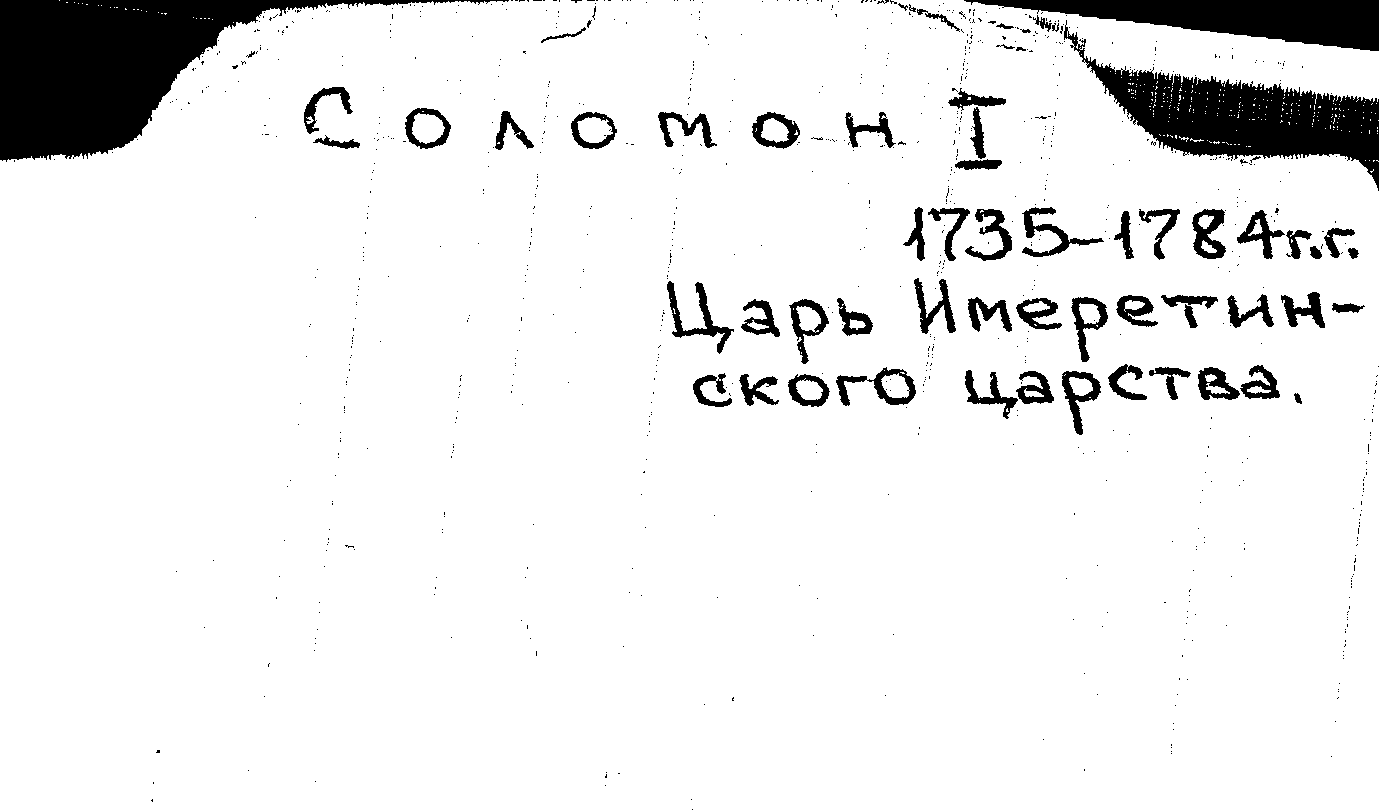 Соломон I
1735-1784г.г.
Царь Имеретин-
ского царства.